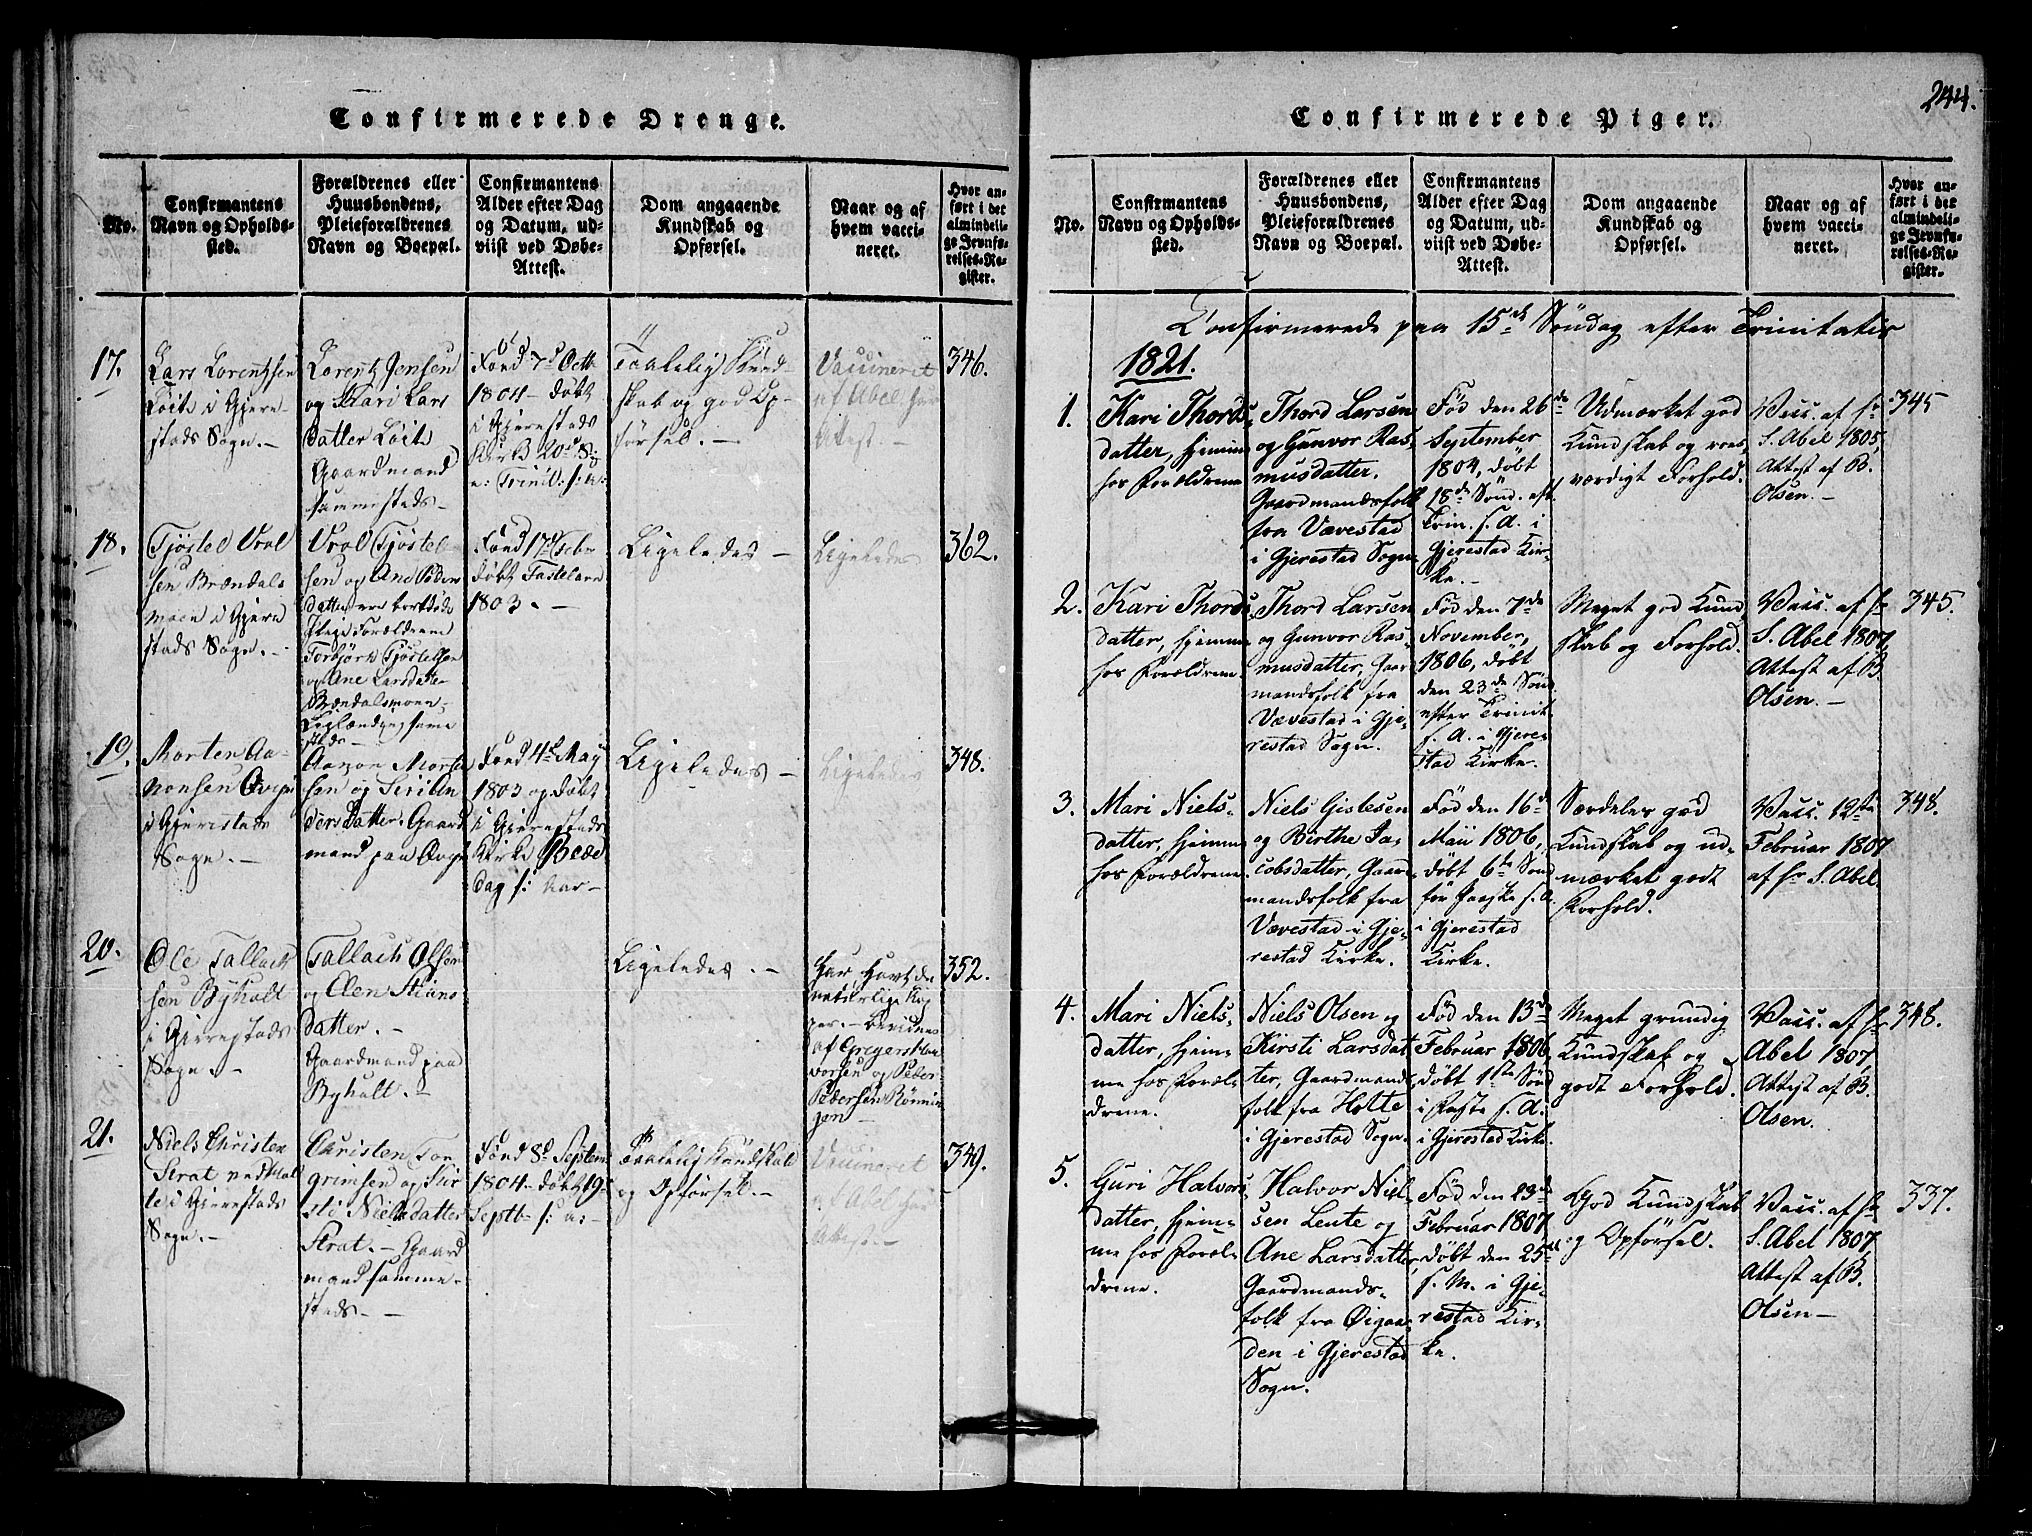 Confirmerede Drenge.
No.
Confirmantens
Navn og Opholds-
sted.
Forældrenes eller
Huusbondens,
Pleieforældrenes
Navn og Boepæl.
Confirmantens
Alder efter Dag
og Datum, ud-
viist ved Døbe-
Attest.
Dom angaaende
Kundskab og
Opførsel.
Naar og af
hvem vacci-
neret.
Hvor an-
ført i det
almindeli-
ge Jevnfø-
relses-Re-
gister.
17.
Lars Lorentzsen
Löite i Gjere-
stads Sogn. -
Lorentz Jensen
og Kari Lars
datter Löite
Gaardmand
sammesteds -
Född 7d Octb
1804 - döbt
i Gjerestads
Kirke 20d S:
e: Trinit: s: a:
Taalelig Kund-
skab og god Op-
försel. -
Vaccineret
af Abel har
Attest -
346.
18.
Tjöstel Orol
sen Brændals
moen i Gjere
stads Sogn. -
Orol Tjöstel
sen og Ane Peders
datter ere bortdöde
Pleie Forældrene
Torbjörn Tjöstelsen
og Ane Larsdatter
Brændalsmoen -
same
steds -
Född 17d Febr
döbt Fastelavn
1803. -
Ligeledes -
Ligeledes
362.
19.
Morten Aa-
nonsen Qvijn
i Gjerestads
Sogn. -
Aanon Morten
sen og Siri An
ders Datter. Gaard
mand paa Qvijn
Född 4de May
1803 og döbt
i Gjerestads
Kirke Bede
dag s: aar -
Ligeledes -
Ligeledes
348.
20.
Ole Tallach
sen Byholt
i Gjerestads
Sogn. -
Tallach Olsen
og Elen Stians
datter. -
Gaardmand paa
Byholt. -
Ligeledes. -
har havt de
naturlige Kop
per. - Bevidnes
af Gregers Hal
vorsen og Peder
Pedersen Rönnin
gen -
352.
21.
Niels Christen
Strat ved Hol
te i Gjerestads
Sogn. -
Christen Tor
grimsen og Kir
sti Nielsdatter
Strat. - Gaard
mand samme-
steds. -
Född 8d Septem
1804 - döbt 19d
Septb - s: a: -
Taalelig Kundskab
og Opförsel. -
Vaccineret
af Abel har
Attest. -
349.
244.
Confirmerede Piger.
No.
Confirmantens
Navn og Opholds-
sted.
Forældrenes eller
Huusbondens,
Pleieforældrenes
Navn og Boepæl.
Confirmantens
Alder efter Dag
og Datum, ud-
viist ved Døbe-
Attest.
Dom angaaende
Kundskab og
Opførsel.
Naar og af
hvem vacci-
neret.
Hvor an-
ført i det
almindeli-
ge Jevnfø-
relses-Re-
gister.
Confirmerede paa 15de Söndag efter Trinitatis
1821.
1.
Kari Thords-
datter, hjemme
hos Forældrene
Thord Larsen
og Gunvor Ras-
musdatter.
Gaardmandsfolk
fra Vævestad
i Gjerestad Sogn.
Fød den 26de
September
1804, døbt
18de Sønd. eft.
Trin. s. A. i
Gjerestad Kir-
ke. -
Udmærket god
Kundskab og roes-
værdigt Forhold.
Vacc. af Hr
S. Abel 1805,
Attest af B.
Olsen. -
345
2.
Kari Thords
datter, hjemme
hos Forældrene.
Thord Larsen
og Gunvor Ras-
musdatter, Gaar-
mandsfolk fra
Vævestad i Gje-
restad Sogn.
Fød den 7de
November,
1806, døbt
den 23de Sønd
efter Trinit.
s. A. i Gjere-
stad Kirke.
Meget god Kund-
skab og Forhold.
Vacc. af Hr
S. Abel 1807,
Attest af B.
Olsen. -
345.
3.
Mari Niels-
datter, hjemme
hos Forældrene.
Niels Gislesen
og Birthe Ja-
cobsdatter, Gaar-
mandsfolk fra
Vævestad i Gje-
restad Kirke.
Fød den 16de
Maii 1806,
døbt 6te Sønd
før Paaske s. A.
i Gjerestad
Kirke.
Særdeles god
Kundskab og ud-
mærket godt
Forhold.
Vacc. 12te
Februar 1807
af Hr S. Abel.
348.
4.
Mari Niels-
datter, hjem-
me hos Foræl-
drene.
Niels Olsen og
Kirsti Larsdat-
ter, Gaardmands-
folk fra Holte
i Gjerestad Sogn.
Fød den 13de
Februar 1806,
døbt 1ste Sønd
i Faste s. A.
i Gjerestad Kirke.
Meget grundig
Kundskab og
godt Forhold.
Vacc. af Hr
Abel 1807,
Attest af B.
Olsen.
348.
5.
Guri Halvors-
datter, hjem-
me hos Foræl-
drene.
Halvor Niel-
sen Lente og
Ane Larsdatter
Gaardmands-
folk fra Øigaar-
den i Gjerestad
Sogn.
Fød den 23de
Februar 1807,
døbt den 25de
s. M. i Gje-
restad Kir-
ke.
God Kundskab
og Opførsel.
Vacc. af Hr
S. Abel 1807,
Attest af B.
Olsen -
337.